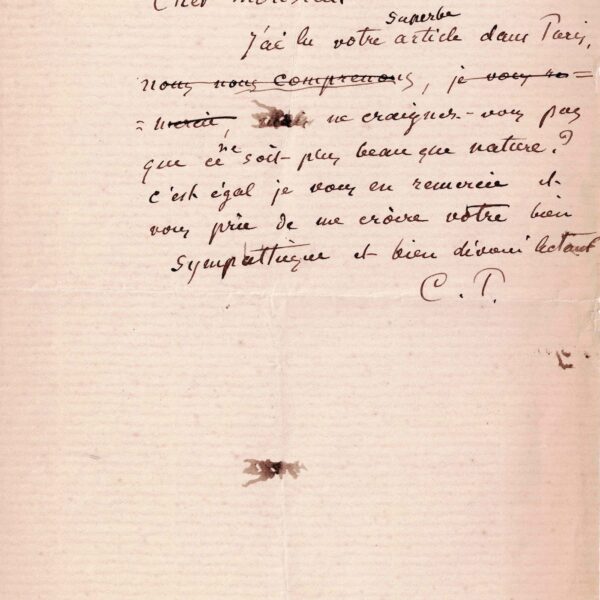 Cher monsieur
superbe
J'ai lu votre article dans Paris,
nous nous comprenons, je vous re=
=mercie, mais ne craignez-vous pas
que ce ne soit plus beau que nature?
c'est égal je vous en remercie et
vous prie de me croire votre bien
sympathique et bien dévoué
C. P.